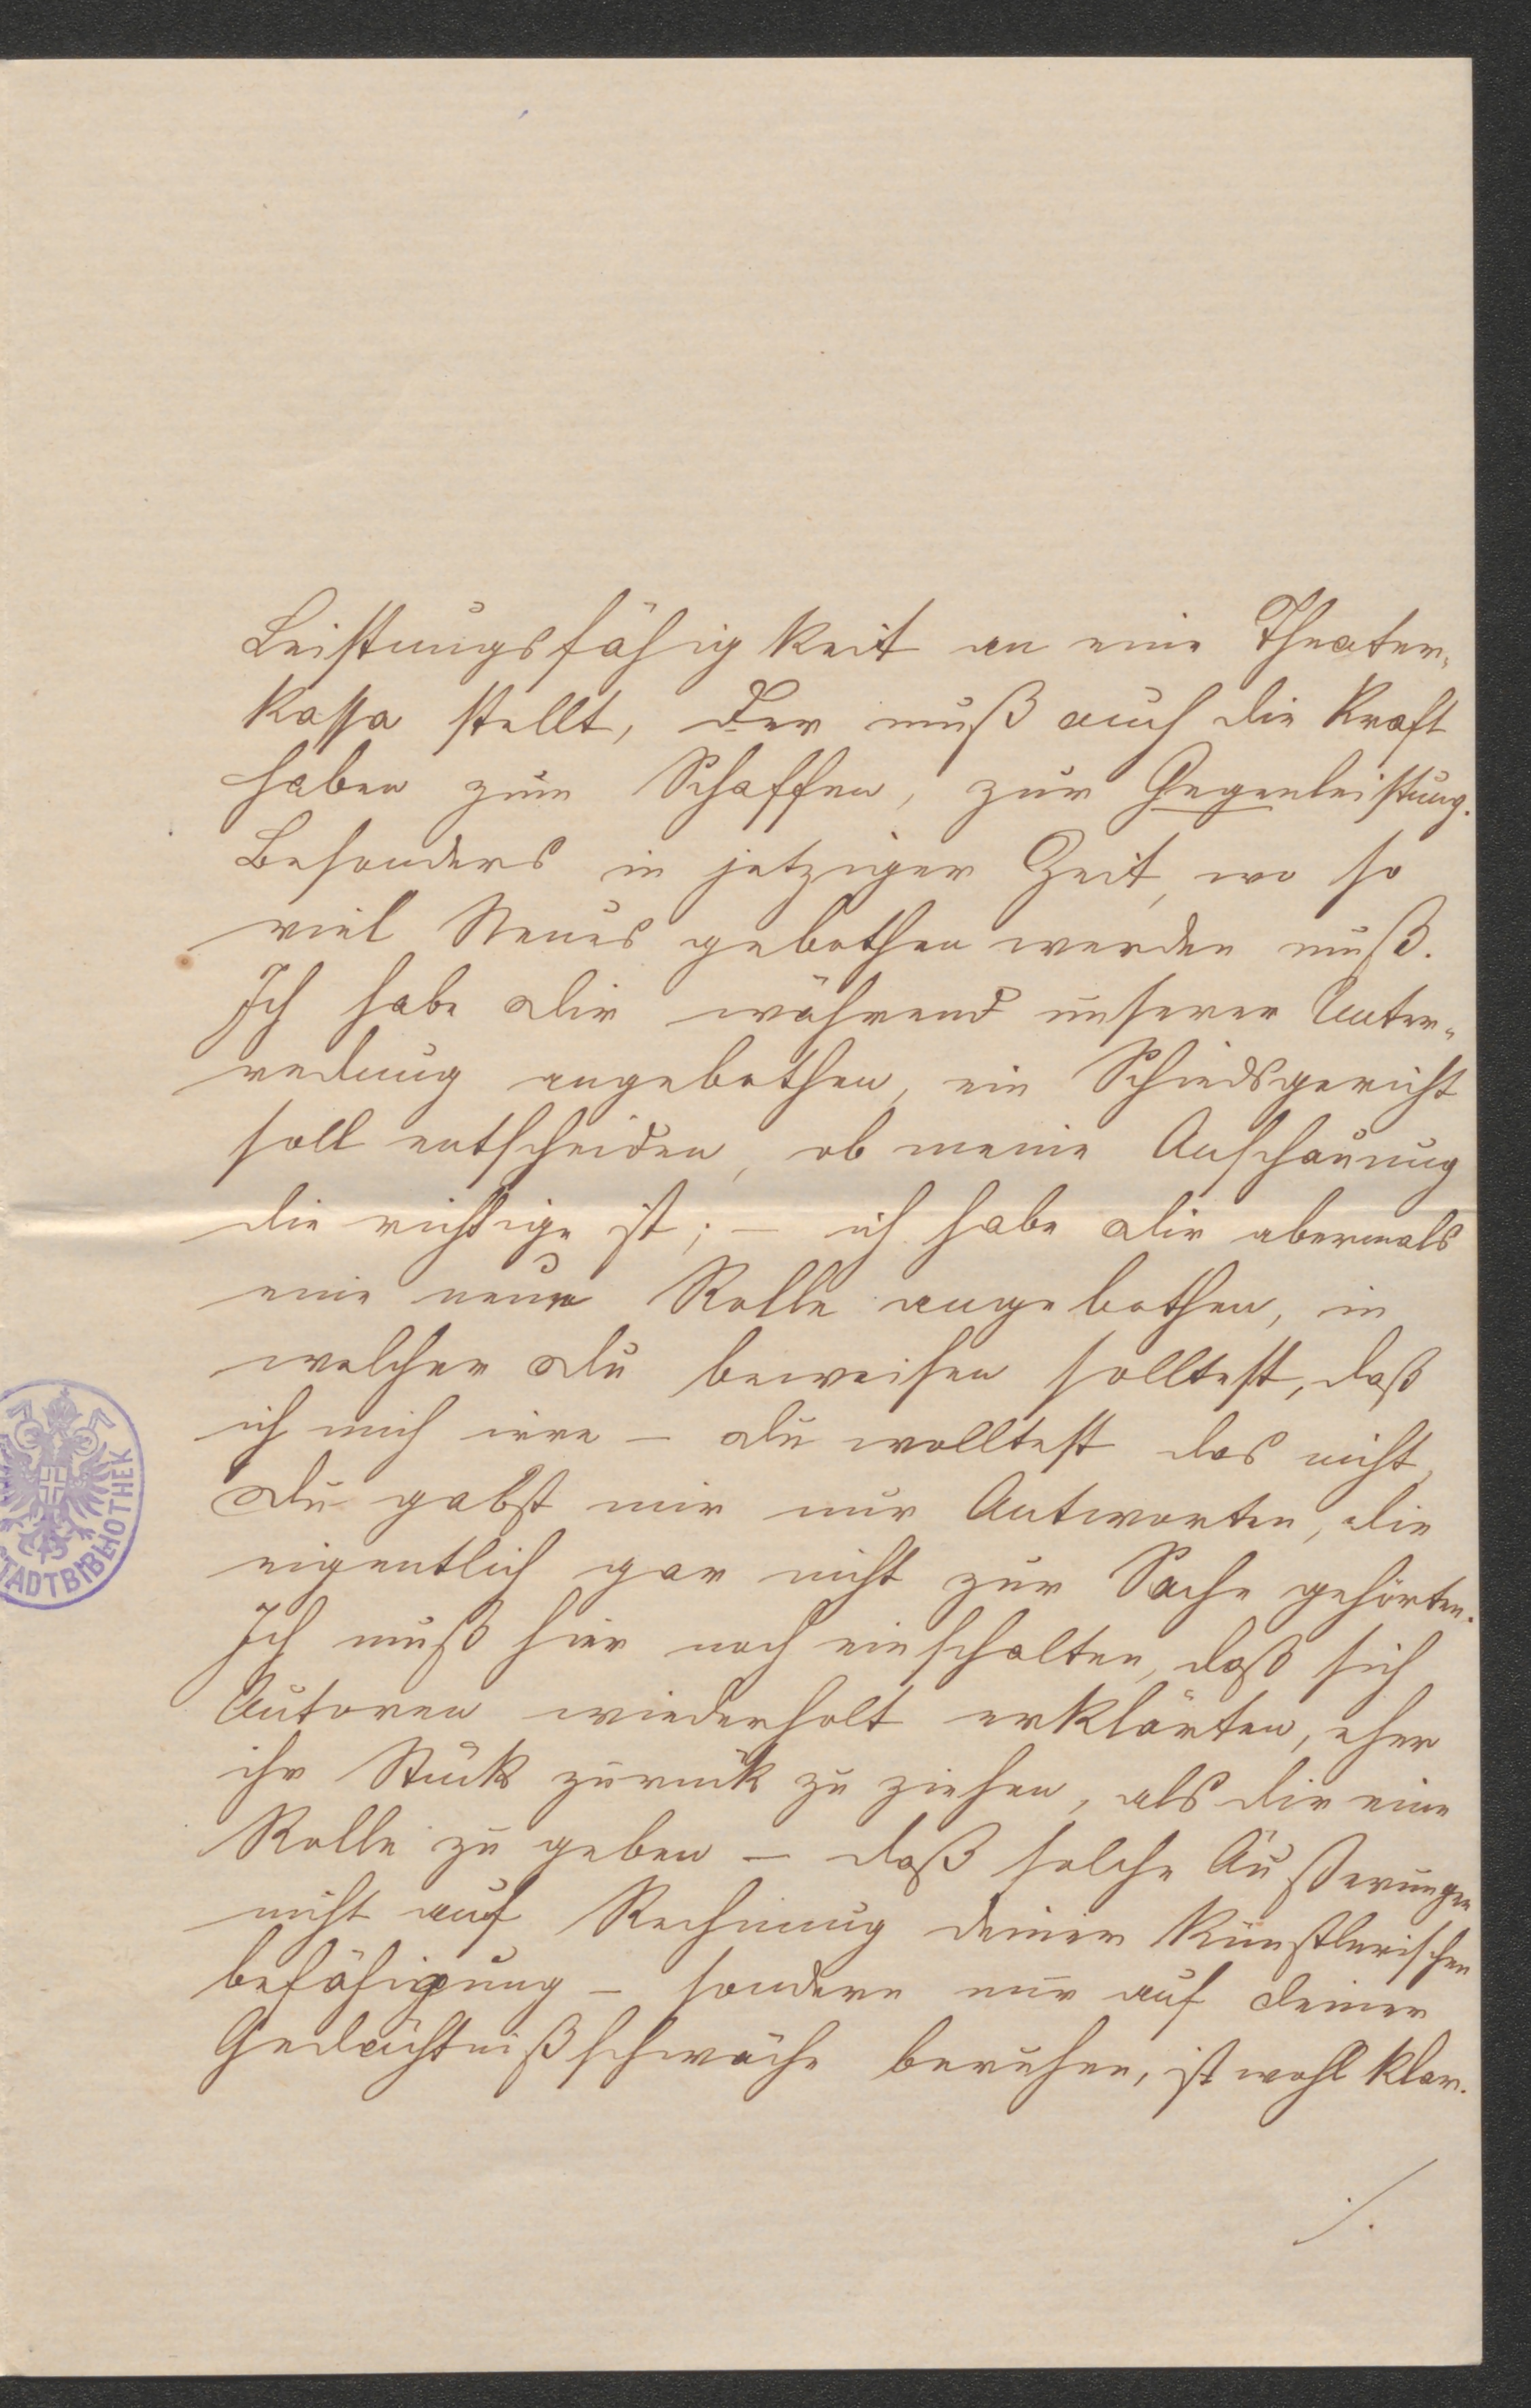 Leistungsfähigkeit an eine Theater-
kassa stellt, der muß auch die Kraft
haben zum Schaffen, zur Gegenleistung.
Besonders in jetziger Zeit, wo so
viel Neues gebothen werden muß.
Ich habe dir während unserer Unter-
redung angebothen, ein Schiedsgericht
soll entscheiden, ob meine Anschauung
die richtige ist; – ich habe dir abermals
eine neue Rolle angebothen, in
welcher du beweisen solltest, daß
ich mich irre – du wolltest das nicht,
du gabst mir nur Antworten, die
eigentlich gar nicht zur Sache gehörten.
Ich muß hier noch einschalten, daß sich
Autoren wiederholt erklärten, eher
ihr Stück zurück zu ziehen, als dir eine
Rolle zu geben – daß solche Äußerungen
nicht auf Rechnung deiner künstlerischen
befähigung – sondern nur auf deiner
Gedächtnißschwäche beruhen, ist wohl klar.
./.
STADTBIBLIOTHEK